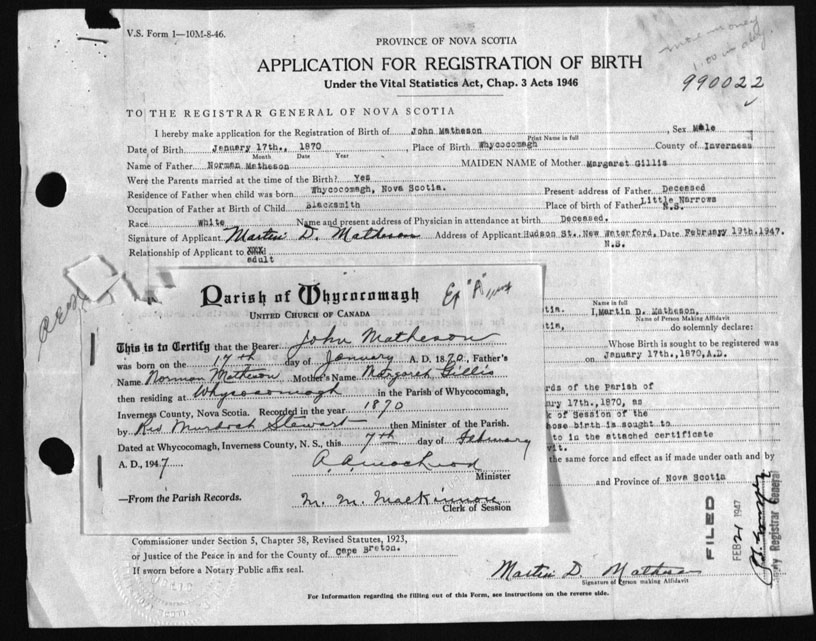 V.S. Form 1—10M-8-46.
PROVINCE OF NOVA SCOTIA
APPLICATION FOR REGISTRATION OF BIRTH
Under the Vital Statistics Act, Chap. 3 Acts 1946
990022
TO THE REGISTRAR GENERAL OF NOVA SCOTIA
I hereby make application for the Registration of Birth of John Matheson, Sex Male
Print Name in full
Date of Birth January 17th., 1870, Place of Birth Whycocomagh County of Inverness
Month Date Year
Name of Father Norman Matheson MAIDEN NAME of Mother Margaret Gillis
Were the Parents married at the time of the Birth? Yes
Residence of Father when child was born Whycocomagh, Nova Scotia. Present address of Father Deceased
Occupation of Father at Birth of Child Blacksmith Place of birth of Father Little Narrows N.S.
Race White Name and present address of Physician in attendance at birth Deceased.
Signature of Applicant Martin D. Matheson Address of Applicant Hudson St., New Waterford, Date February 19th.1947.
N.S.
Relationship of Applicant to
adult
Parish of Whycocomagh
UNITED CHURCH OF CANADA
Ex "A"
This is to Certify that the Bearer John Matheson
was born on the 17th day of January A. D. 1870, Father's
Name Norman Matheson Mother's Name Margaret Gillis
then residing at Whycocomagh in the Parish of Whycocomagh,
Inverness County, Nova Scotia. Recorded in the year 1870
by Rev Murdoch Stewart then Minister of the Parish.
Dated at Whycocomagh, Inverness County, N. S., this 7th day of February
A. D., 1947
Minister
—From the Parish Records. M. M. MacKinnon
Clerk of Session
Name in full
tia. I, Martin D. Matheson,
Name of Person Making Affidavit
tia, do solemnly declare:
Whose Birth is sought to be registered was
on January 17th.,1870,A.D.
rds of the Parish of
ry 17th.,1870, as
k of Session of the
hose birth is sought to
to in the attached certificate
vit.
the same force and effect as if made under oath and by
and Province of Nova Scotia
FILED
FEB 21 1947
Registrar General
Commissioner under Section 5, Chapter 38, Revised Statutes, 1923,
or Justice of the Peace in and for the County of Cape Breton.
If sworn before a Notary Public affix seal.
Martin D. Matheson
Signature of Person making Affidavit
For Information regarding the filling out of this Form, see instructions on the reverse side.